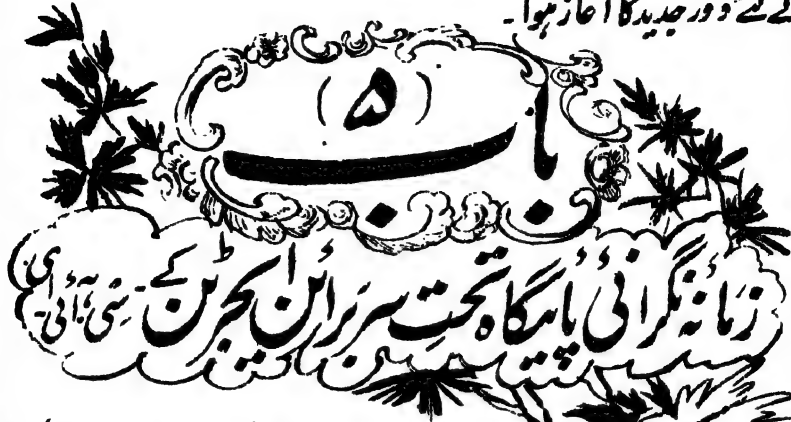 لئے دور جدید کا آغاز ہوا۔
باب (۵)
زمانۂ نگرانئ پائیگاہ تحتِ سر برائن ایجرٹن کے۔ سی۔ آئی۔ ای۔